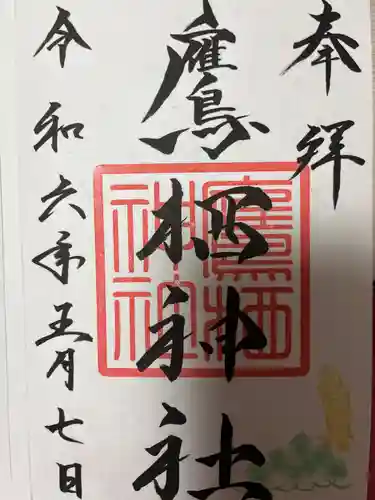 奉拝
鷹栖神社
鷹栖
神社
令和六年五月七日